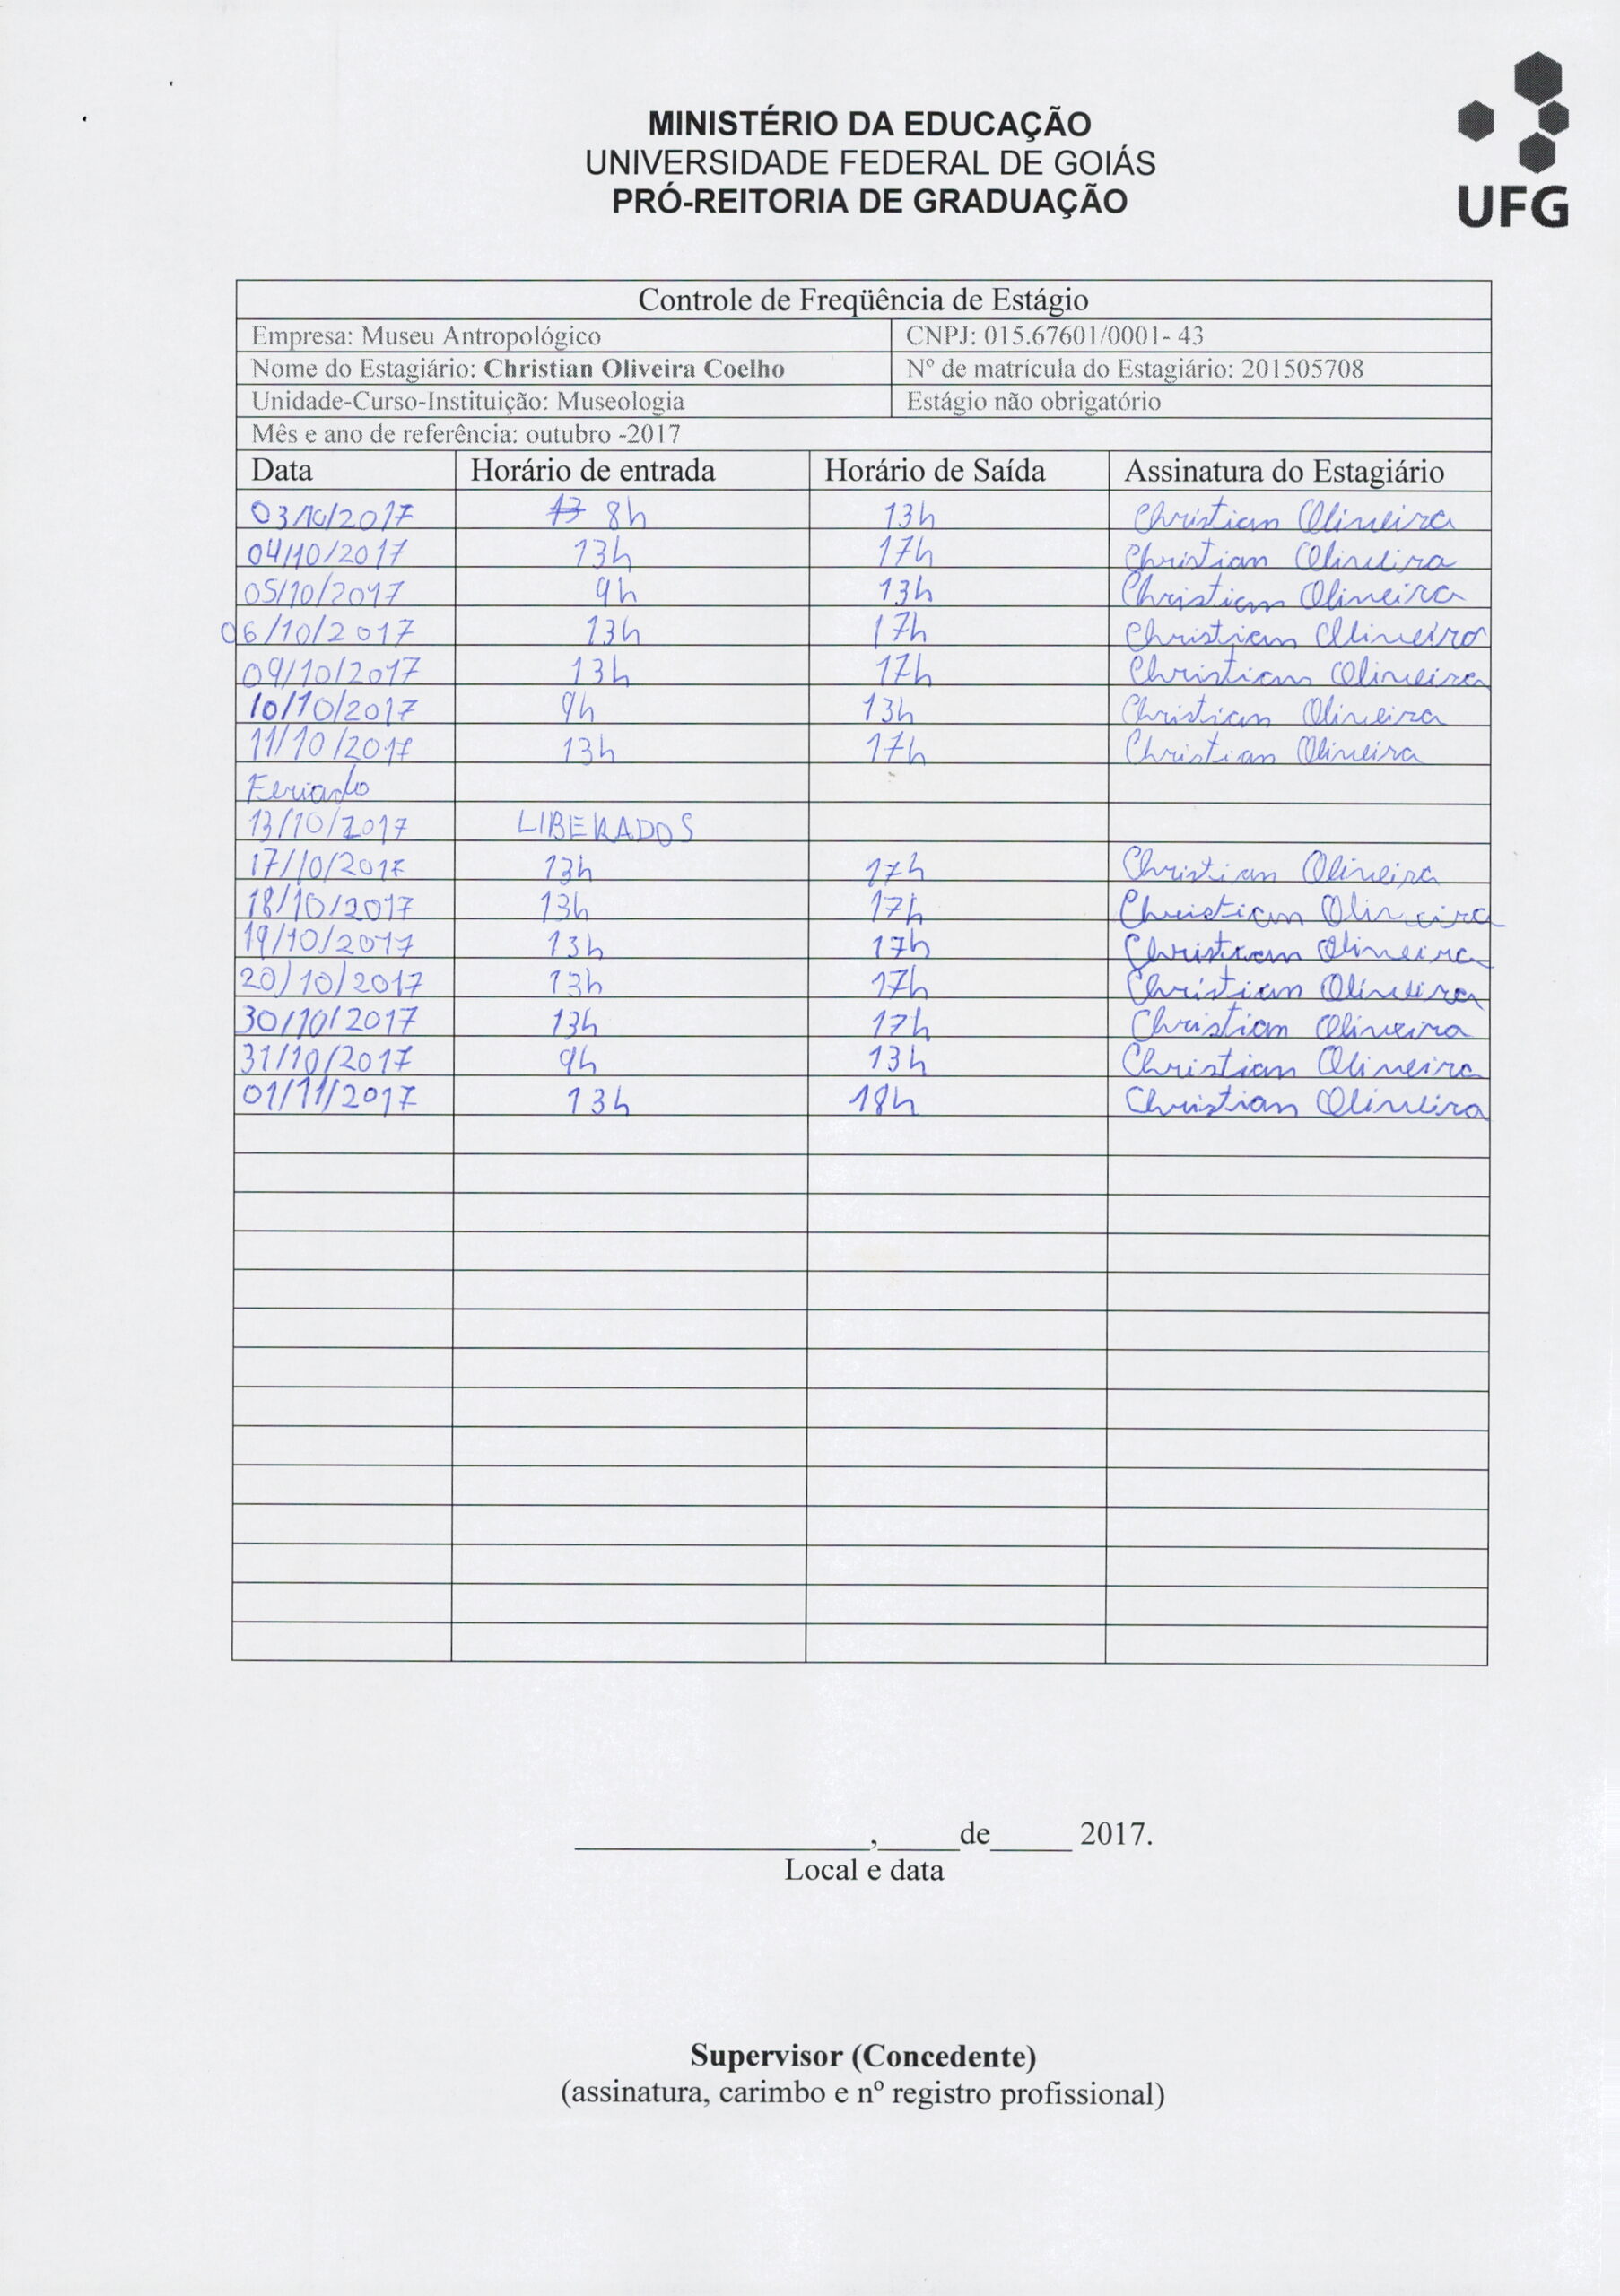 MINISTÉRIO DA EDUCAÇÃO
UNIVERSIDADE FEDERAL DE GOIÁS
PRÓ-REITORIA DE GRADUAÇÃO
UFG
Controle de Freqüência de Estágio
Empresa: Museu Antropológico CNPJ: 015.67601/0001- 43
Nome do Estagiário: Christian Oliveira Coelho Nº de matrícula do Estagiário: 201505708
Unidade-Curso-Instituição: Museologia Estágio não obrigatório
Mês e ano de referência: outubro -2017
Data Horário de entrada Horário de Saída Assinatura do Estagiário
03/10/2017 13 8h 13h Christian Oliveira
04/10/2017 13h 17h Christian Oliveira
05/10/2017 9h 13h Christian Oliveira
06/10/2017 13h 17h Christian Oliveira
09/10/2017 13h 17h Christian Oliveira
10/10/2017 9h 13h Christian Oliveira
11/10/2017 13h 17h Christian Oliveira
Feriado
13/10/2017 LIBERADOS
17/10/2017 13h 17h Christian Oliveira
18/10/2017 13h 17h Christian Oliveira
19/10/2017 13h 17h Christian Oliveira
20/10/2017 13h 17h Christian Oliveira
30/10/2017 13h 17h Christian Oliveira
31/10/2017 9h 13h Christian Oliveira
01/11/2017 13h 18h Christian Oliveira
__________________,_____de_____ 2017.
Local e data
Supervisor (Concedente)
(assinatura, carimbo e nº registro profissional)